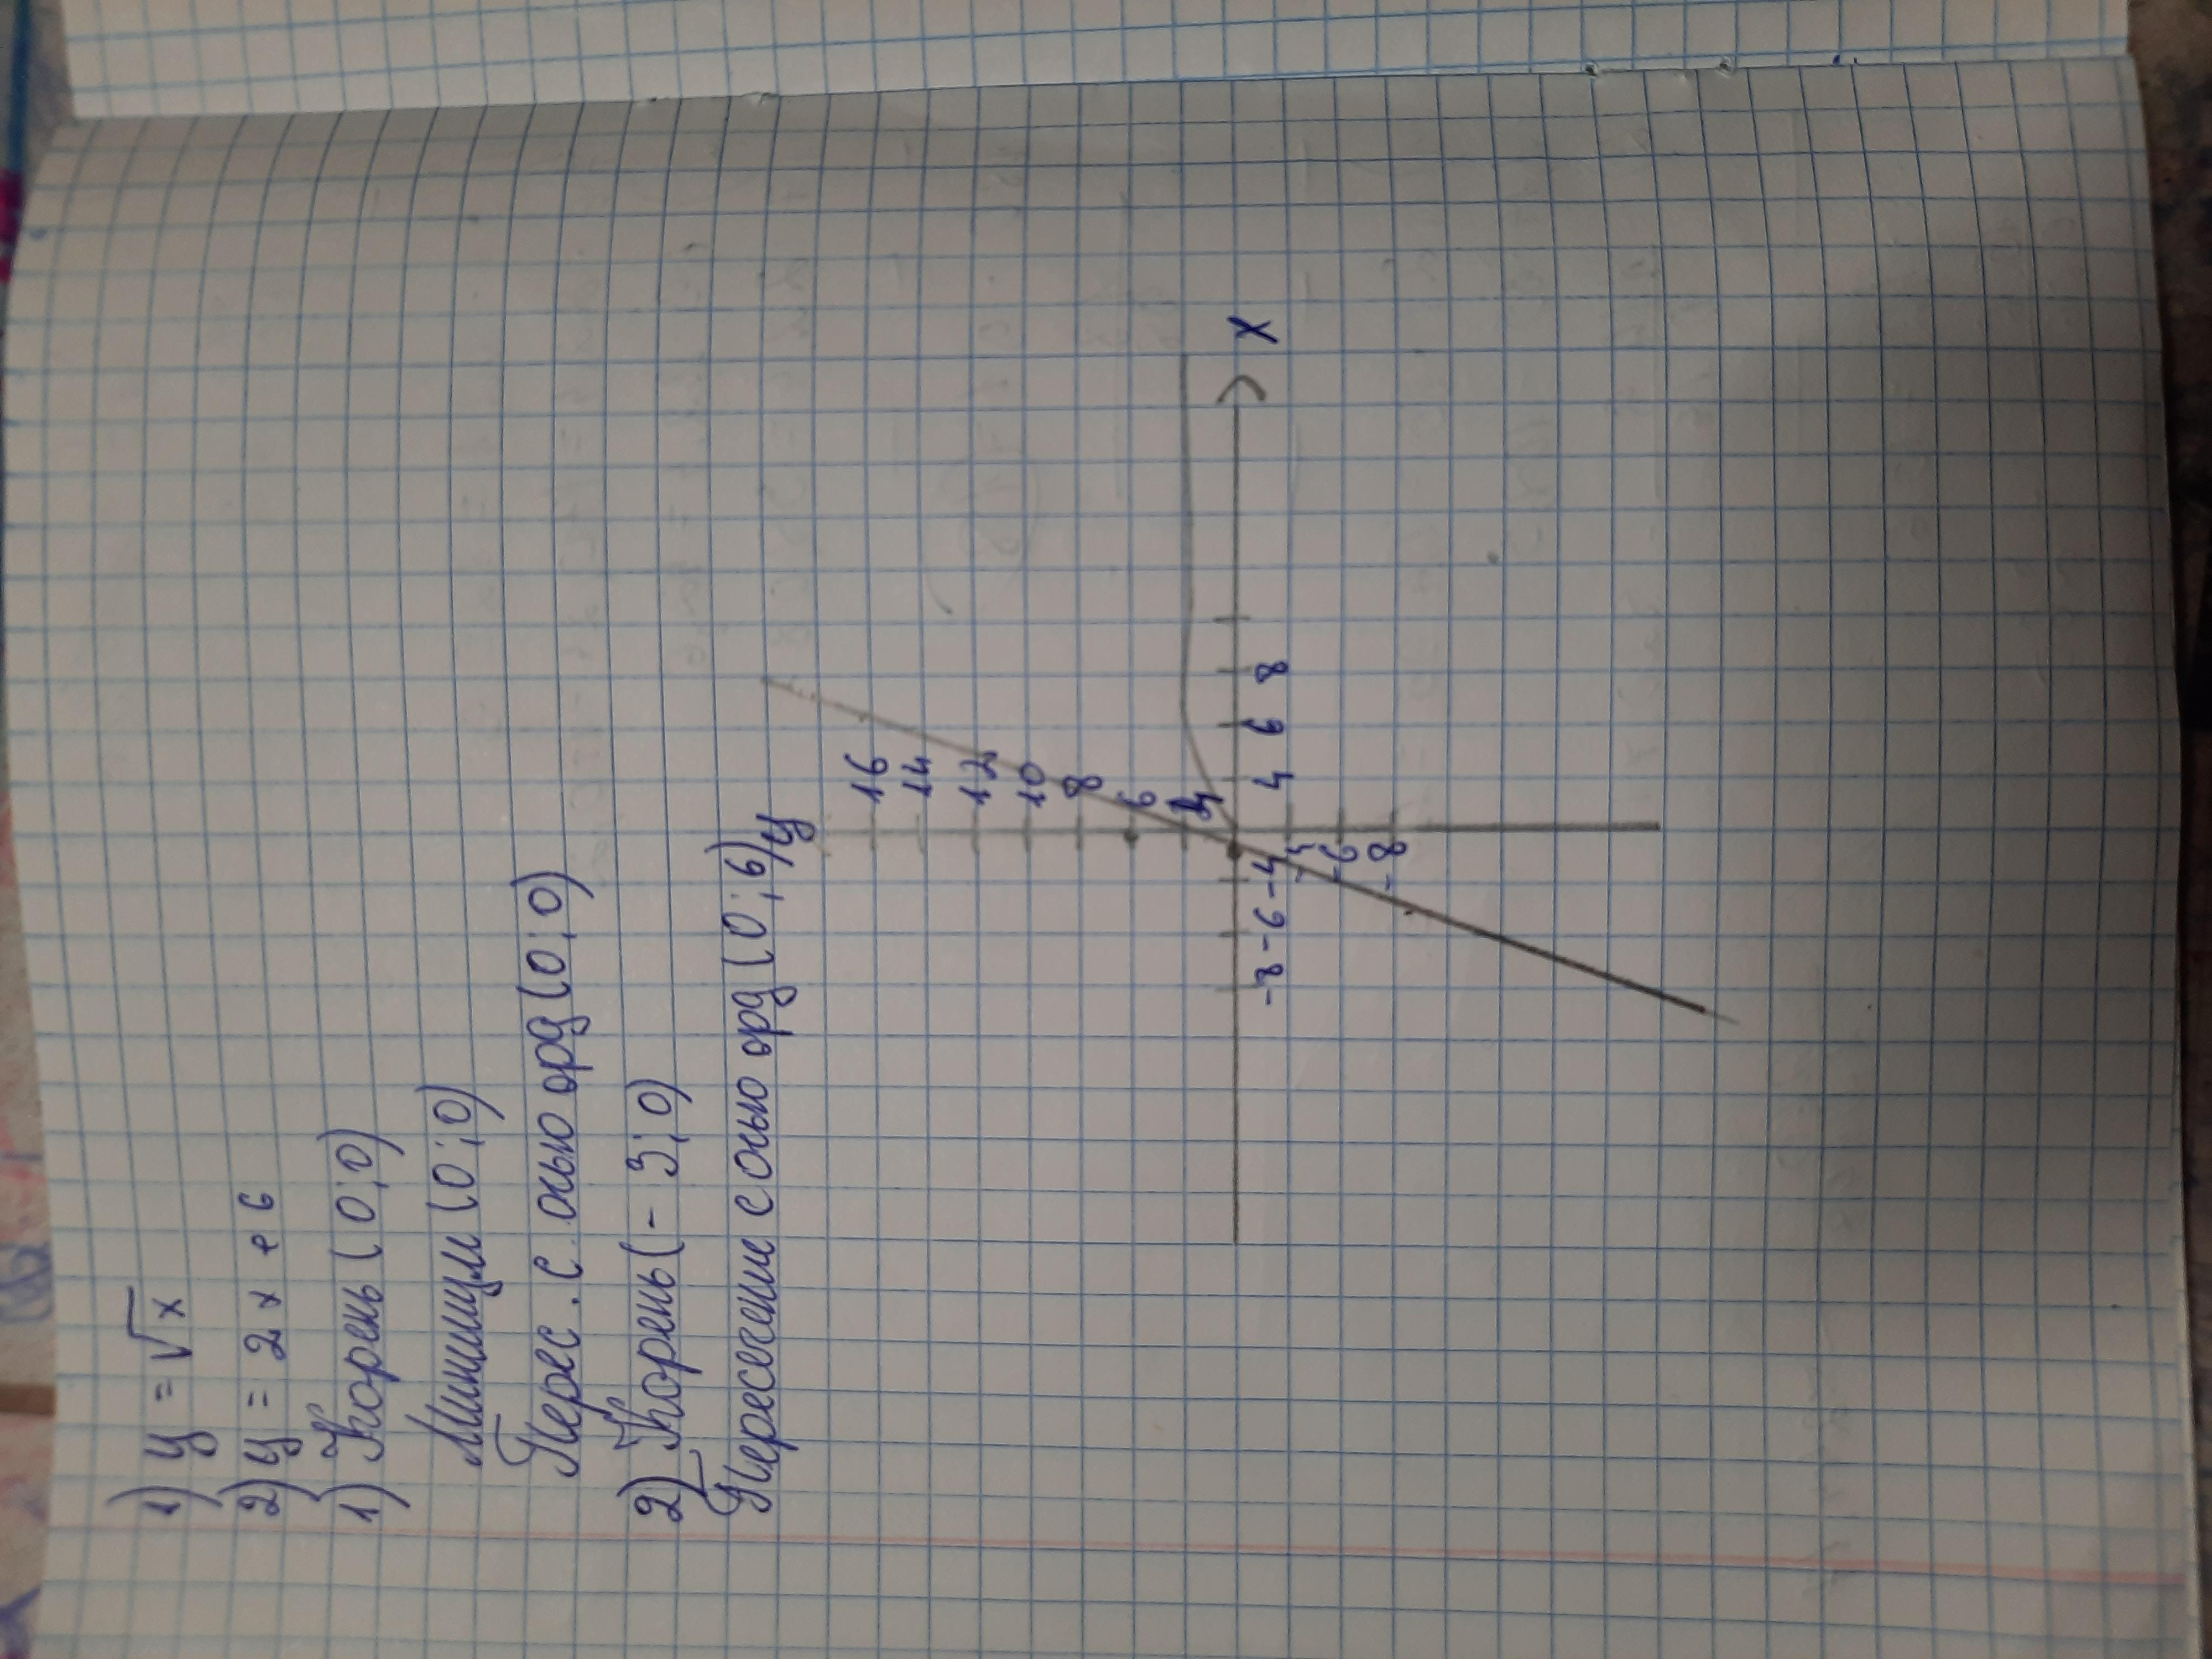 1) y = √x
2) y = 2x + 6
1) Корень (0;0)
Минимум (0;0)
Перес. с осью орд (0;0)
2) Корень (-3;0)
Пересечение с осью орд (0;6)
y
16
14
12
10
8
6
4
-8 -6 -4 4 6 8 x
-6
-8